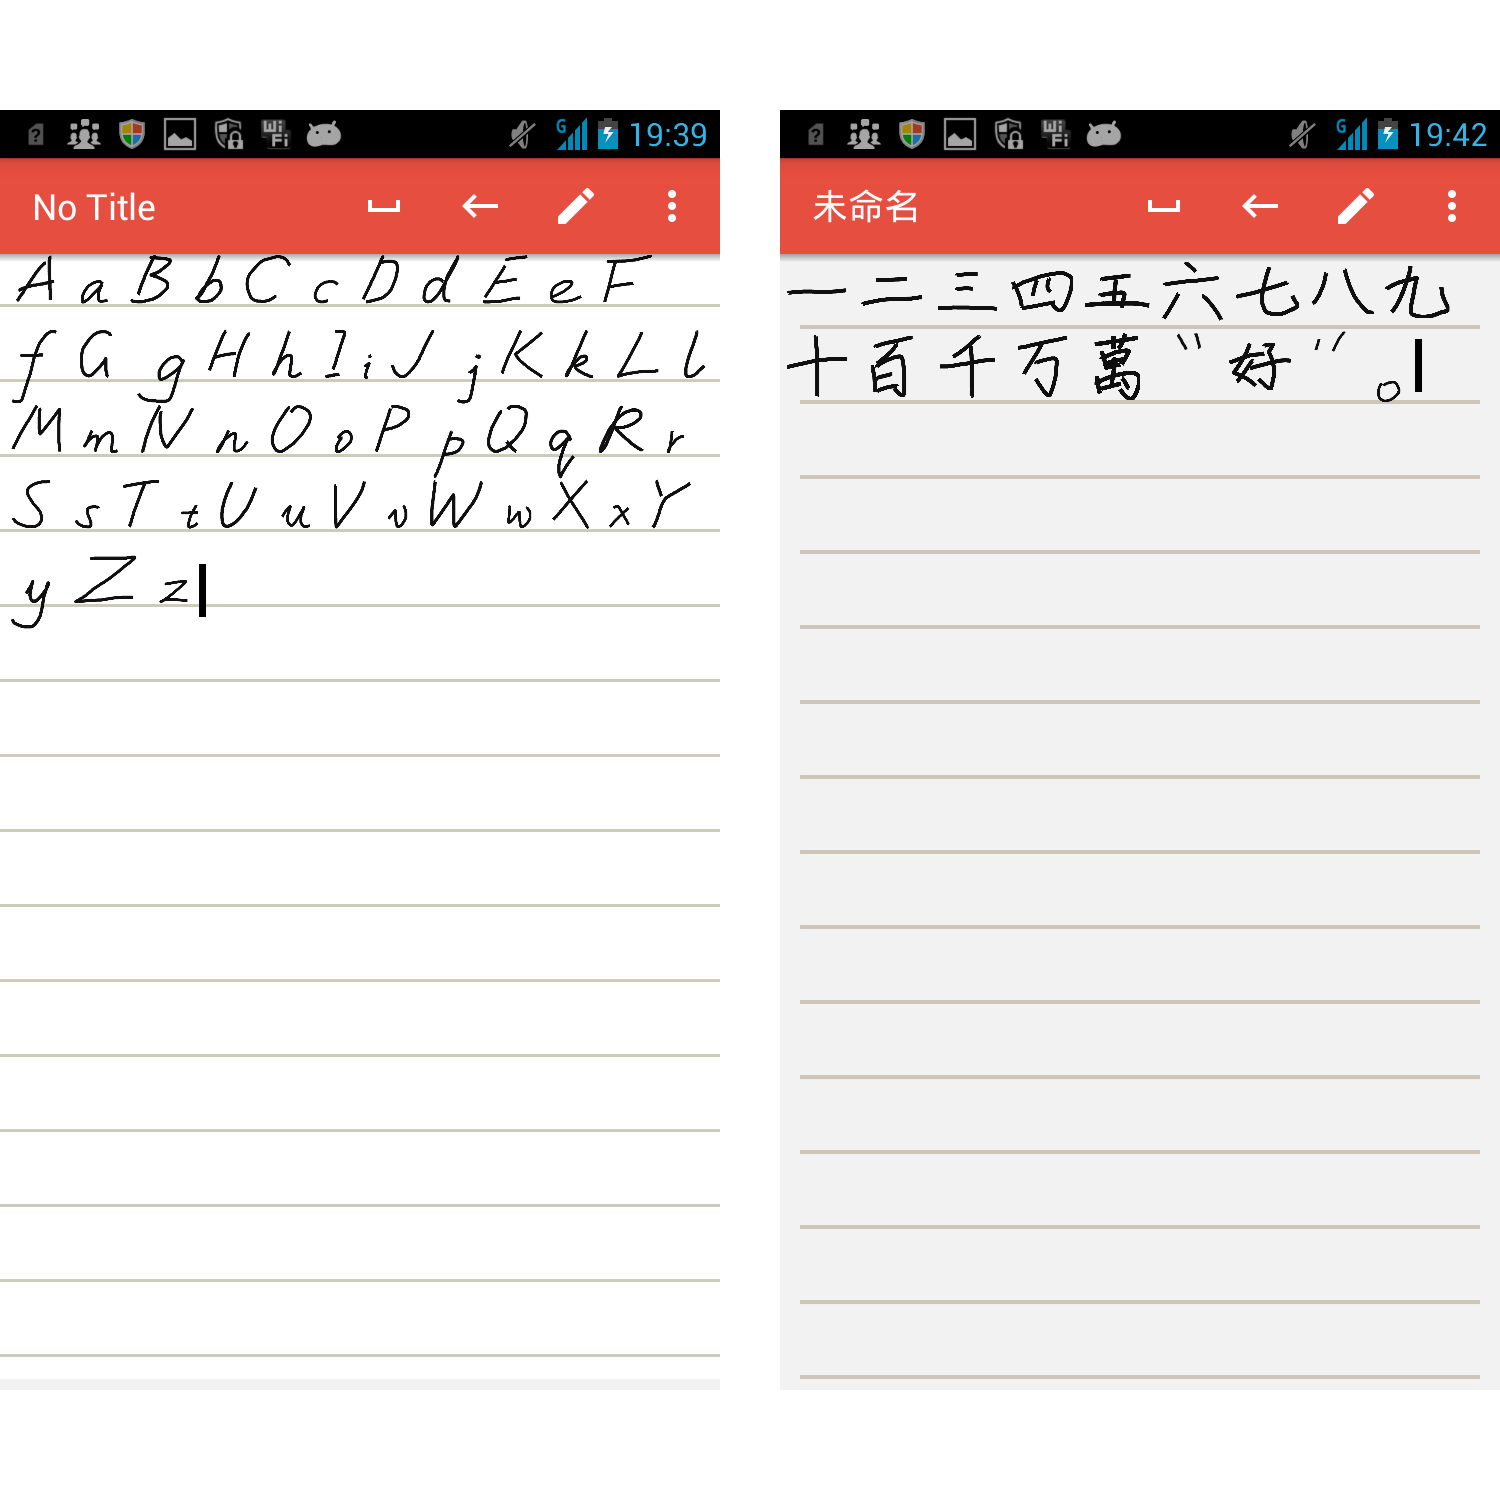 19:39
No Title
A a B b C c D d E e F
f G g H h I i J j K k L l
M m N n O o P p Q q R r
S s T t U u V v W w X x Y
y Z z
19:42
未命名
一二三四五六七八九
十百千万萬“好”。